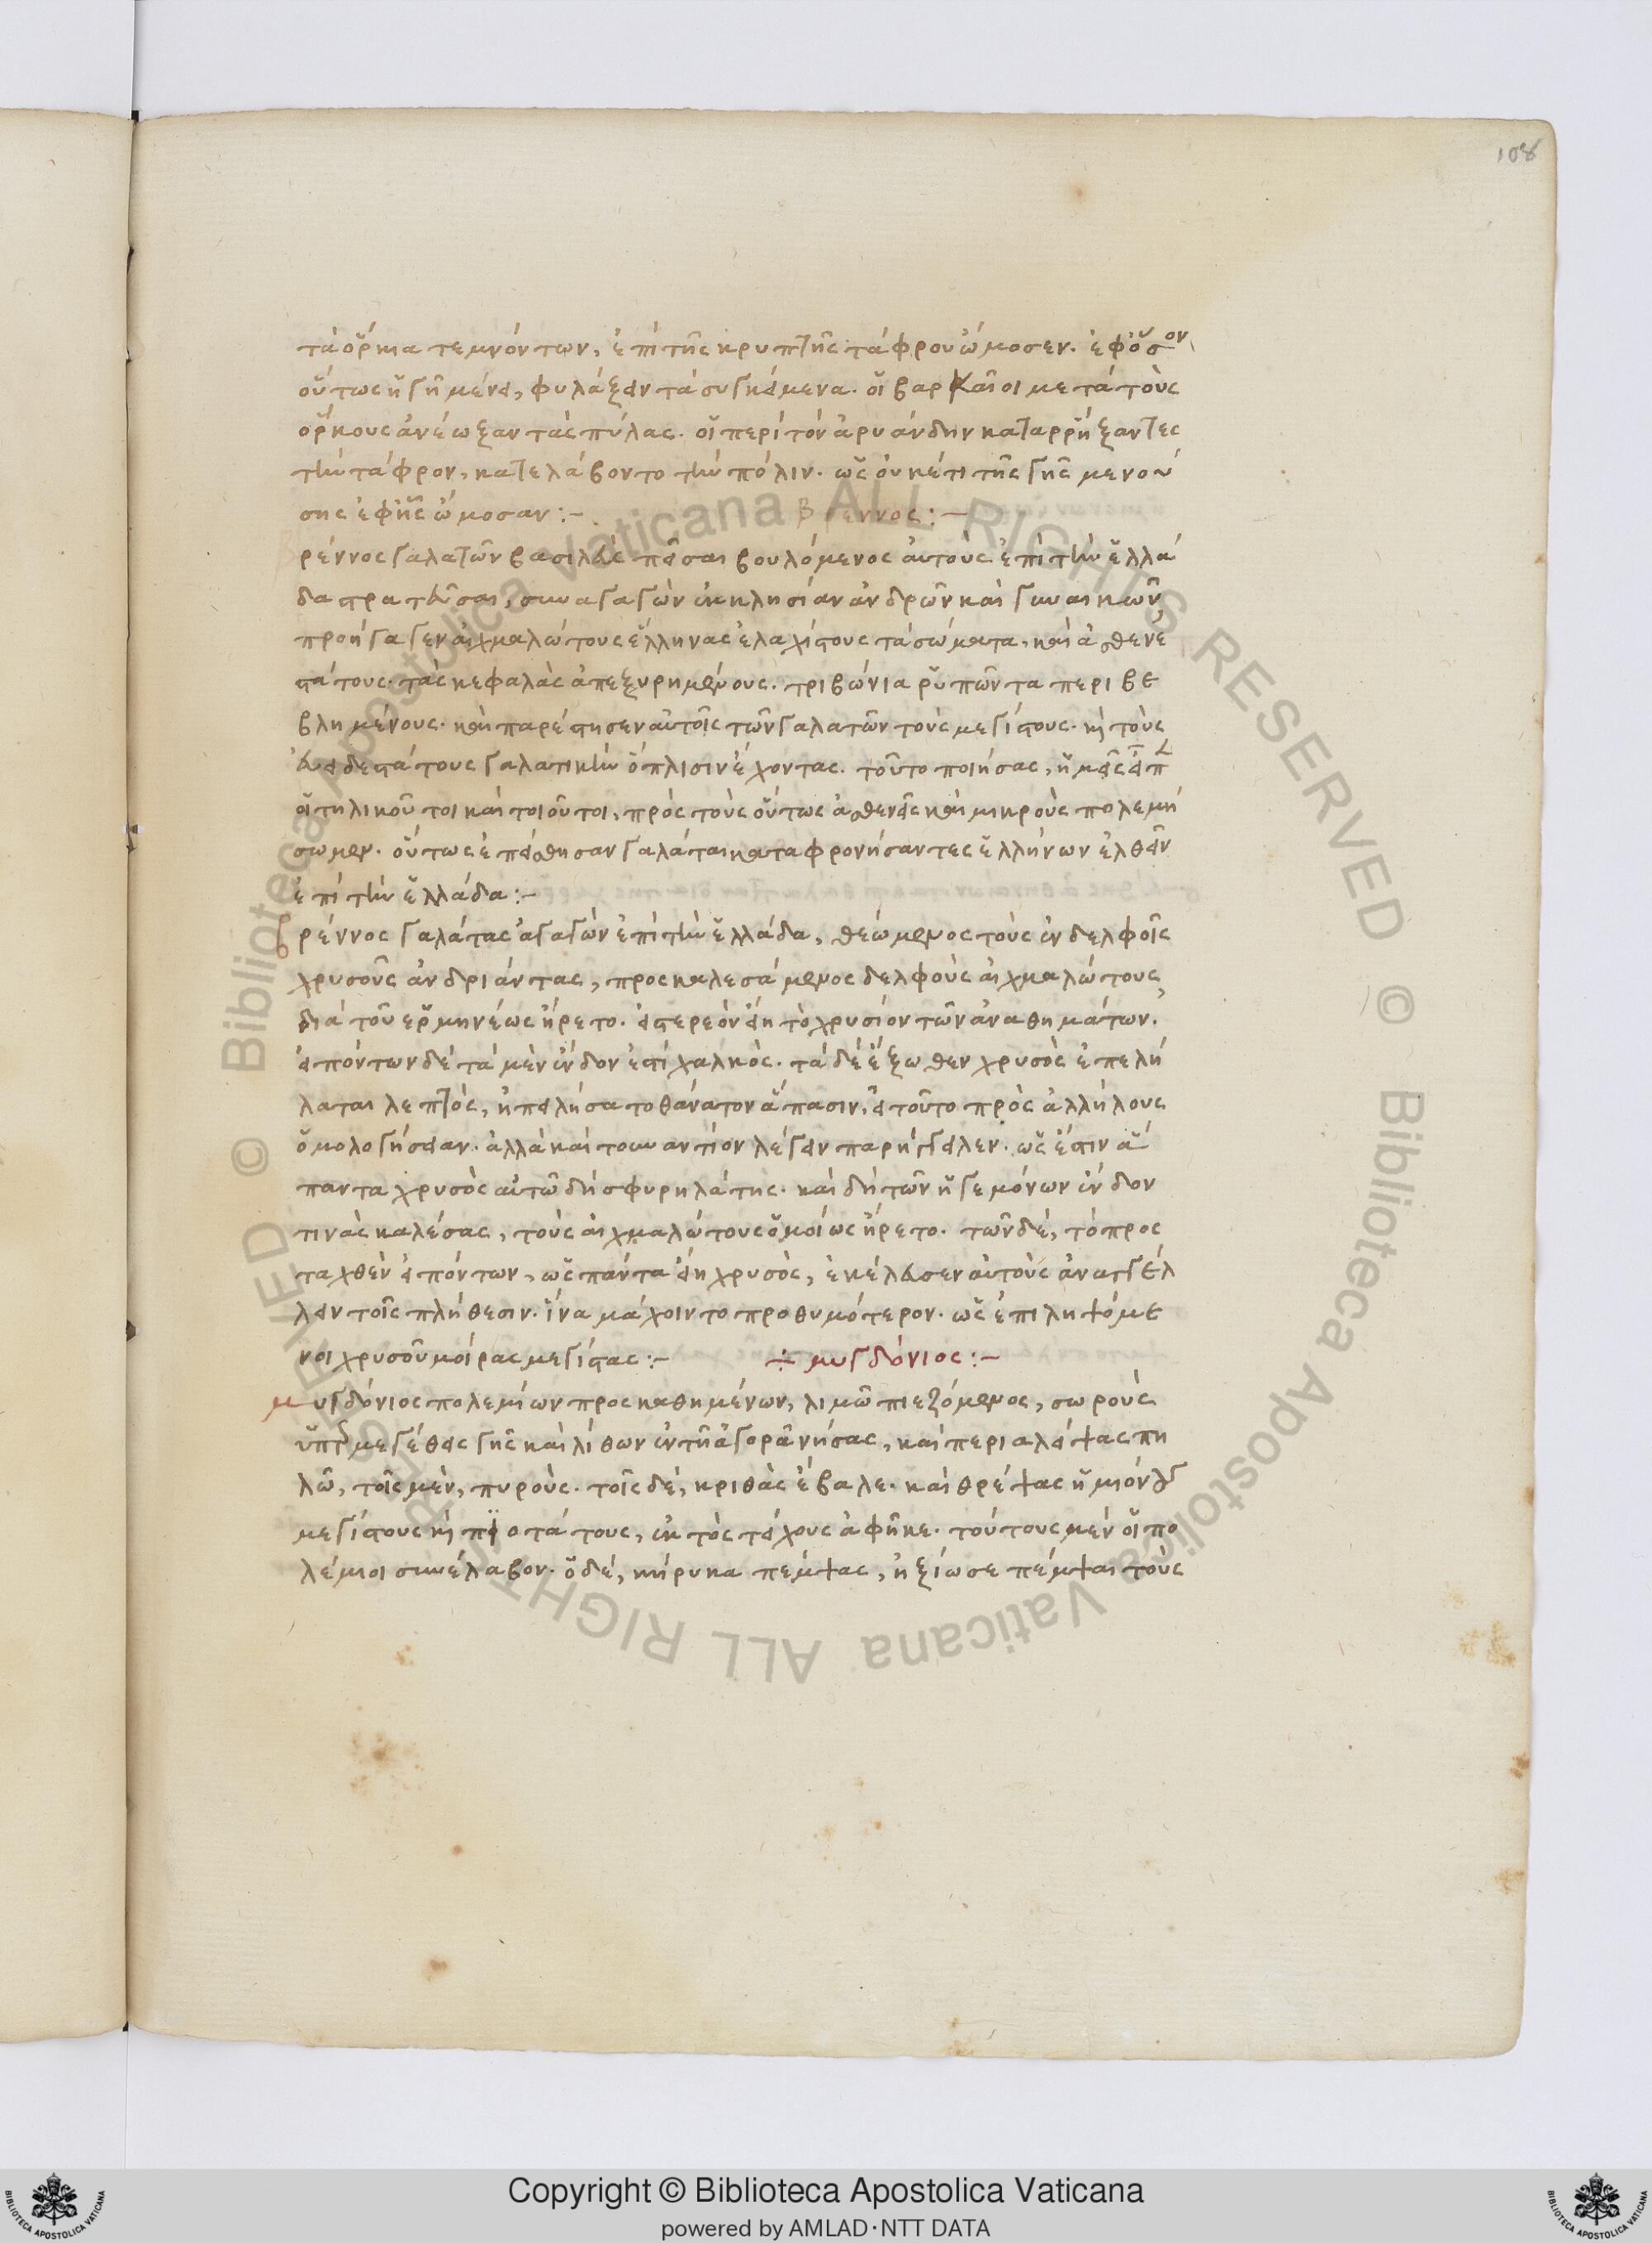 108
τὰ ὅρκια τεμνόντων, ἐπὶ τῆς κρυπτῆς τάφρου ὤμοσεν. ἐφ' ὅσον
οὕτως ἡ γῆ μένει, φυλάξειν τὰ συγκείμενα. οἱ βαρκαῖοι μετὰ τοὺς
ὅρκους ἀνέωξαν τὰς πύλας. οἱ περὶ τὸν ἀρυάνδην καταρρήξαντες
τὴν τάφρον, κατελάβοντο τὴν πόλιν. ὡς οὐκέτι τῆς γῆς μενού
σης ἐφ' ἧς ὤμοσαν :-
βρέννος :-
ρέννος γαλατῶν βασιλεὺς πεῖσαι βουλόμενος αὐτοὺς ἐπὶ τὴν ἑλλά
δα στρατεῦσαι, συναγαγὼν ἐκκλησίαν ἀνδρῶν καὶ γυναικῶν,
προήγαγεν αἰχμαλώτους ἕλληνας ἐλαχίστους τὰ σώματα, καὶ ἀσθενε
στάτους. τὰς κεφαλὰς ἀπεξυρημένους. τριβώνια ῥυπῶντα περιβε
βλημένους. καὶ παρέστησεν αὐτοῖς τῶν γαλατῶν τοὺς μεγίστους. καὶ τοὺς
εὐειδεστάτους γαλατικὴν ὅπλισιν ἔχοντας. τοῦτο ποιήσας, ἡμεῖς εἶπεν
οἱ τηλικοῦτοι καὶ τοιοῦτοι, πρὸς τοὺς οὕτως ἀσθενεῖς καὶ μικροὺς πολεμή
σωμεν. οὕτως ἐπείσθησαν γαλάται καταφρονήσαντες ἑλλήνων ἐλθεῖν
ἐπὶ τὴν ἑλλάδα :-
βρέννος γαλάτας ἀγαγὼν ἐπὶ τὴν ἑλλάδα, θεώμενος τοὺς ἐν δελφοῖς
χρυσοῦς ἀνδριάντας, προςκαλεσάμενος δελφοὺς αἰχμαλώτους,
διὰ τοῦ ἑρμηνέως ἤρετο. εἰ στερεὸν εἴη τὸ χρυσίον τῶν ἀναθημάτων.
εἰπόντων δὲ τὰ μὲν ἔνδον ἐστὶ χαλκός. τὰ δὲ ἔξωθεν χρυσὸς ἐπελή
λαται λεπτός, ἠπειλήσατο θάνατον ἅπασιν, εἰ τοῦτο πρὸς ἀλλήλους
ὁμολογήσειαν. ἀλλὰ καὶ τουναντίον λέγειν παρήγγειλεν. ὡς ἔστιν ἅ
παντα χρυσὸς αὐτῶ δὴ σφυρηλάτης. καὶ δὴ τῶν ἡγεμόνων ἔνδον
τινὰς καλέσας, τοὺς αἰχμαλώτους ὁμοίως ἤρετο. τῶν δὲ, τὸ προς
ταχθὲν εἰπόντων, ὡς πάντα εἴη χρυσὸς, ἐκέλευσεν αὐτοὺς ἀναγγέλ
λειν τοῖς πλήθεσιν. ἵνα μάχοιντο προθυμότερον. ὡς ἐπιληψόμε
νοι χρυσοῦ μοίρας μεγίστας :-
÷ μυγδόνιος :-
μυγδόνιος πολεμίων προςκαθημένων, λιμῶ πιεζόμενος, σωροὺς
ὑπερμεγέθεις γῆς καὶ λίθων ἐν τῆ ἀγορᾶ νήσας, καὶ περιαλείψας πη
λῶ, τοῖς μὲν, πυρούς. τοῖς δὲ, κριθὰς ἔβαλε. καὶ θρέψας ἡμιόνους
μεγίστους καὶ πιοτάτους, ἐκτὸς τείχους ἀφῆκε. τούτους μὲν οἱ πο
λέμιοι συνέλαβον. ὁ δὲ, κήρυκα πέμψας, ἠξίωσε πέμψαι τοὺς
Copyright © Biblioteca Apostolica Vaticana
powered by AMLAD·NTT DATA